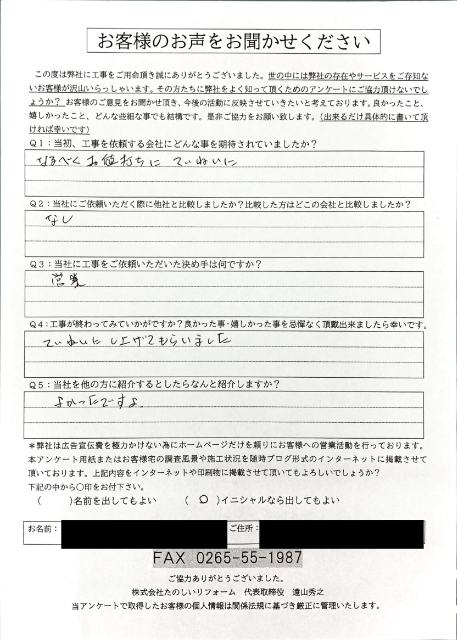 お客様のお声をお聞かせください
この度は弊社に工事をご用命頂き誠にありがとうございました。世の中には弊社の存在やサービスをご存知な
いお客様が沢山いらっしゃいます。その方たちに弊社をよく知って頂くためのアンケートにご協力頂けないでし
ょうか？お客様のご意見をお聞かせ頂き、今後の活動に反映させていきたいと考えております。良かったこと、
嬉しかったこと、どんな些細な事でも結構です。是非ご協力をお願い致します。（出来るだけ具体的に書いて頂
ければ幸いです）
Q1：当初、工事を依頼する会社にどんな事を期待されていましたか？
なるべくお値打ちに ていねいに
Q2：当社にご依頼いただく際に他社と比較しましたか？比較した方はどこの会社と比較しましたか？
なし
Q3：当社に工事をご依頼いただいた決め手は何ですか？
営業
Q4：工事が終わってみていかがですか？良かった事・嬉しかった事を忌憚なく頂戴出来ましたら幸いです。
ていねいに 仕上げてもらいました
Q5：当社を他の方に紹介するとしたらなんと紹介しますか？
よかったですよ
＊弊社は広告宣伝費を極力かけない為にホームページだけを頼りにお客様への営業活動を行っております。
本アンケート用紙またはお客様宅の調査風景や施工状況を随時ブログ形式のインターネットに掲載させて
頂いております。上記内容をインターネットや印刷物に掲載させて頂いてもよろしいでしょうか？
下記の中から〇印をお付下さい。
（　　）名前を出してもよい　（ 〇 ）イニシャルなら出してもよい
お名前：　ご住所：
FAX 0265-55-1987
ご協力ありがとうございました。
株式会社たのしいリフォーム　代表取締役　遠山秀之
当アンケートで取得したお客様の個人情報は関係法規に基づき厳正に管理いたします。